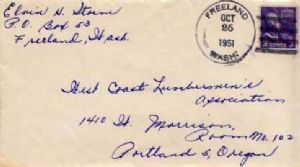 Elvin H. Storm
P.O. Box 53
Freeland, Wash.
FREELAND
OCT
25
1951
WASH.
3 CENTS 3
West Coast Lumbermen's
Association
1410 St. Morrison,
Room No. 102
Portland 5, Oregon